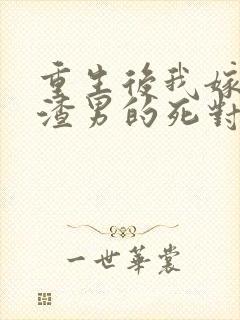 重生後我嫁
渣男的死對
一世華裳